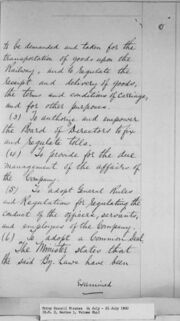 to be demanded and taken for the
transportation of goods upon the
Railway, and to regulate the
receipt and delivery of goods,
the terms and conditions of Carriage,
and for other purposes.
(3) To authorize and empower
the Board of Directors to fix
and regulate tolls.
(4) To provide for the due
management of the affairs of
the Company.
(5) To adopt General Rules
and Regulations for regulating the
conduct of the officers, servants,
and employees of the Company
(6) To adopt a Common Seal
The Minister states that
the said By-Laws have been
Examined